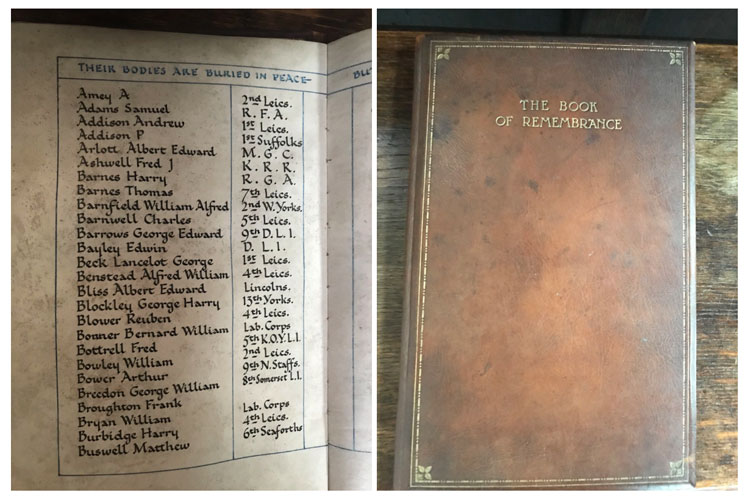 THEIR BODIES ARE BURIED IN PEACE
Amey A 2nd Leics.
Adams Samuel R. F. A.
Addison Andrew 1st Leics.
Addison P 1st Suffolks
Arlott Albert Edward M. G. C.
Ashwell Fred J K. R. R.
Barnes Harry R. G. A.
Barnes Thomas 7th Leics.
Barnfield William Alfred 2nd W. Yorks.
Barnwell Charles 5th Leics.
Barrows George Edward 9th D. L. I.
Bayley Edwin D. L. I.
Beck Lancelot George 1st Leics.
Benstead Alfred William 4th Leics.
Bliss Albert Edward Lincolns.
Blockley George Harry 13th Yorks.
Blower Reuben 4th Leics.
Bonner Bernard William Lab. Corps
Bottrell Fred 5th K.O.Y.L.I.
Bowley William 2nd Leics.
Bower Arthur 9th N. Staffs.
Breedon George William 8th Somerset L.I.
Broughton Frank Lab. Corps
Bryan William 4th Leics.
Burbidge Harry 6th Seaforths
Buswell Matthew
THE BOOK
OF REMEMBRANCE